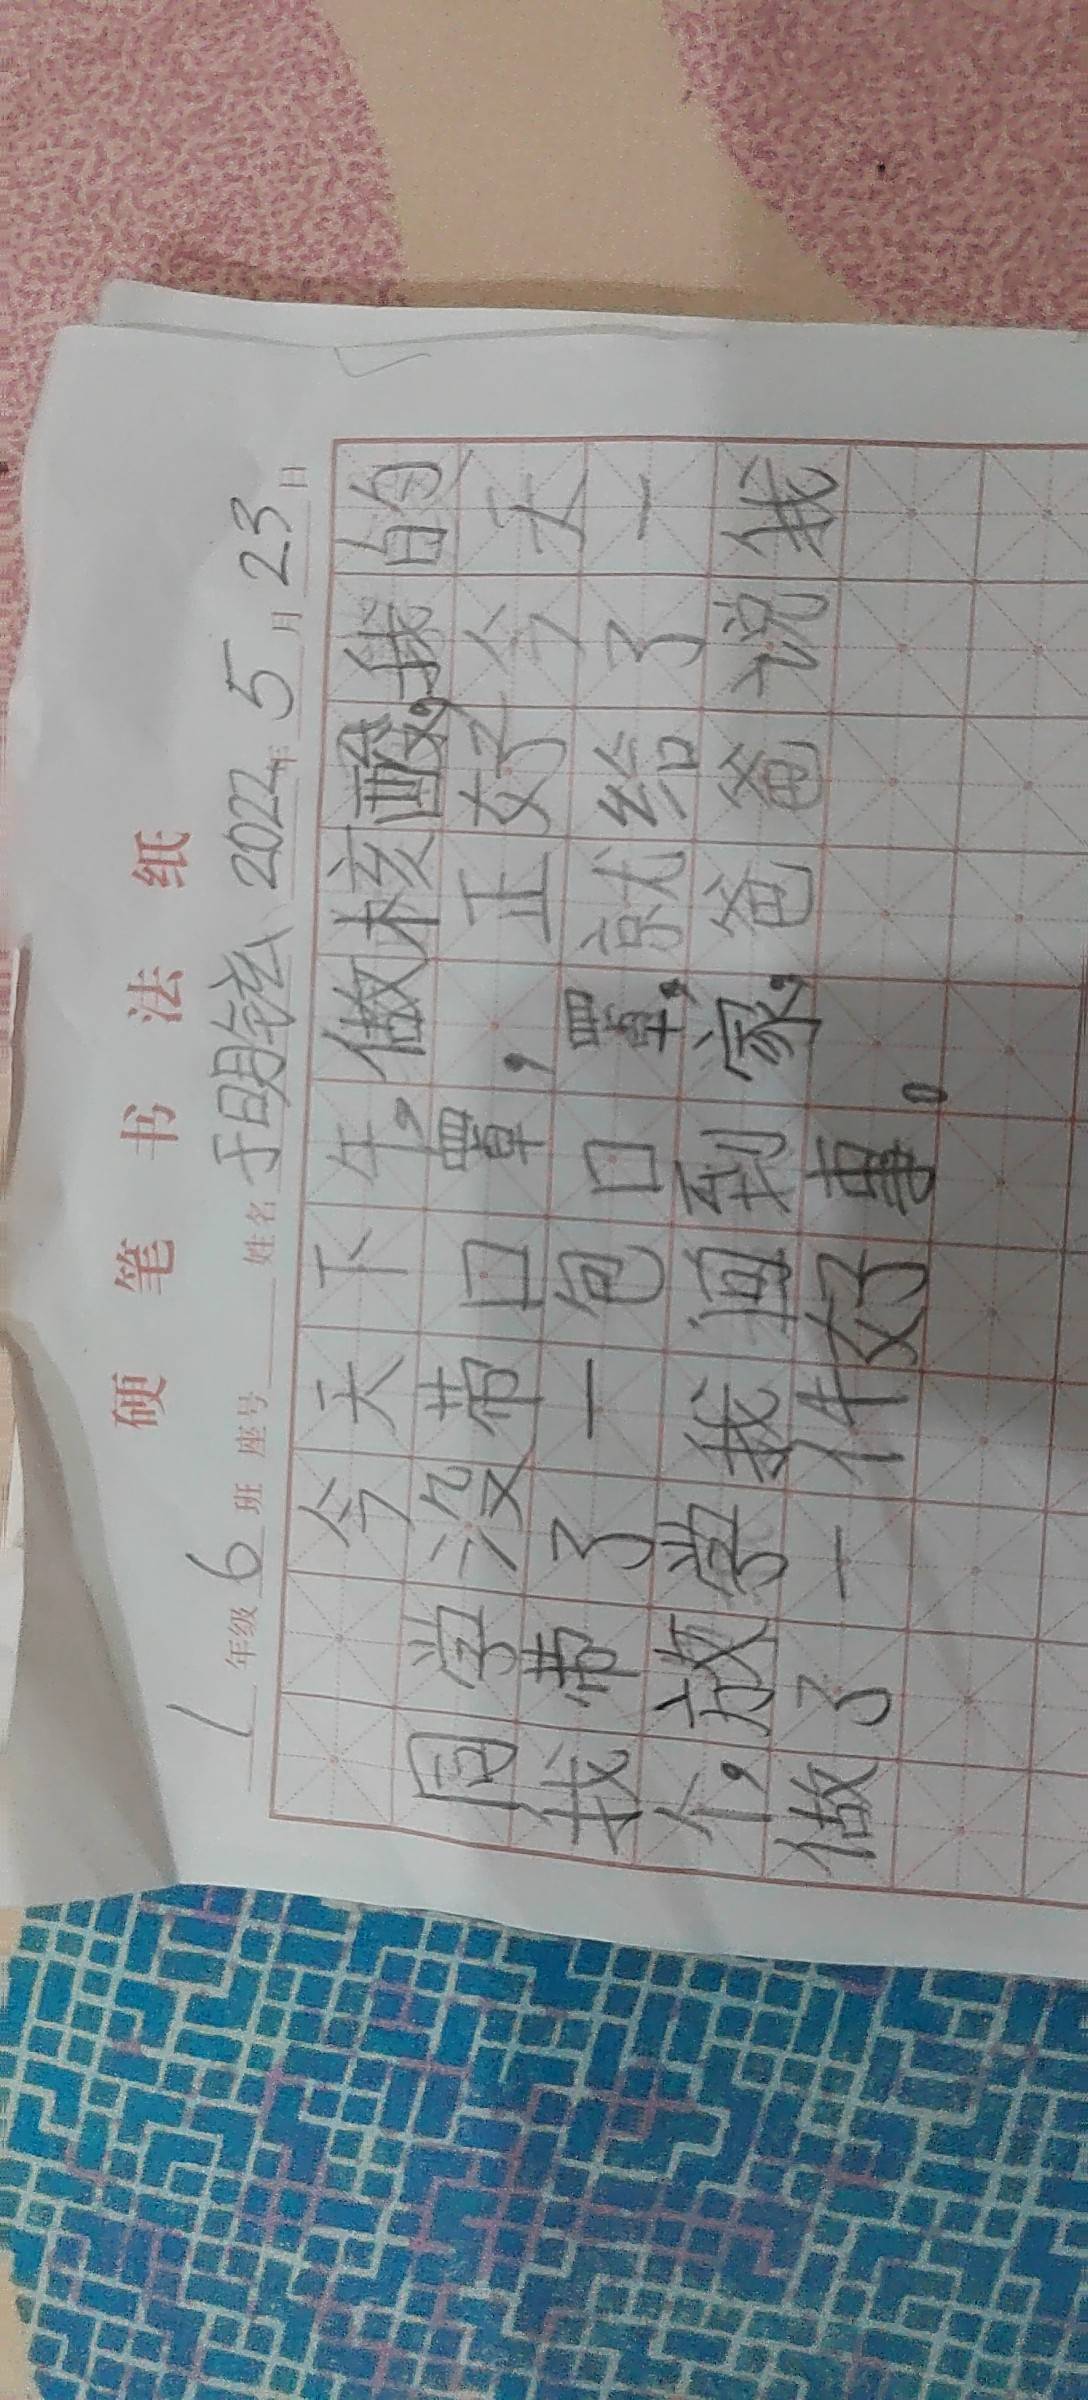 硬笔书法纸
1年级6班 座号 姓名于明铉2022年5月23日
今天下午,做核酸,我的
同学没带口罩,正好今天
我带了一包口罩,就给了一
个,放学我回到家,爸爸说我
做了一件好事。